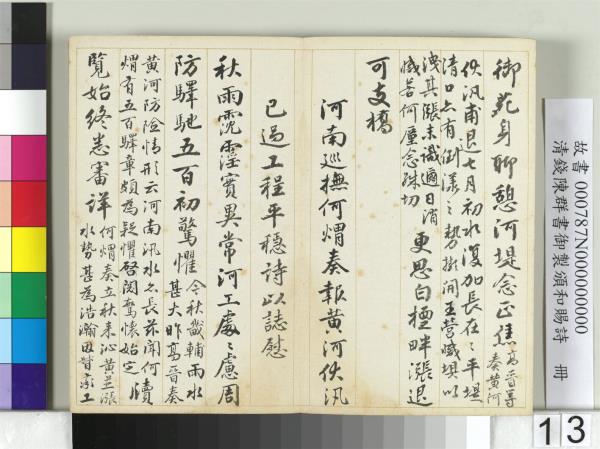 御苑身聊憩河堤念正焦 高晉等
奏黃河
伏汛甫退七月初水復加長在在平堤
清口亦有倒漾之勢擬開王營減壩以
洩其漲未識邇日消
減若何廑念殊切 更思白 畔漲退
可支橋
河南巡撫何煟奏報黃河伏汛
已過工程平穩詩以誌慰
秋雨霓淫實異常河工處處慮周
防驛馳五百初驚懼 今秋畿輔雨水
甚大昨高晉奏
黃河防險情形云河南汛水亦長茲聞何
煟有五百驛章頗為疑懼啓閱 懷始定 牘
覽始終悉審詳 何煟奏立秋來沁黃並漲
水勢甚為浩瀚因督率工
故書 000787N000000000
清錢陳群書御製頒和賜詩 冊
13